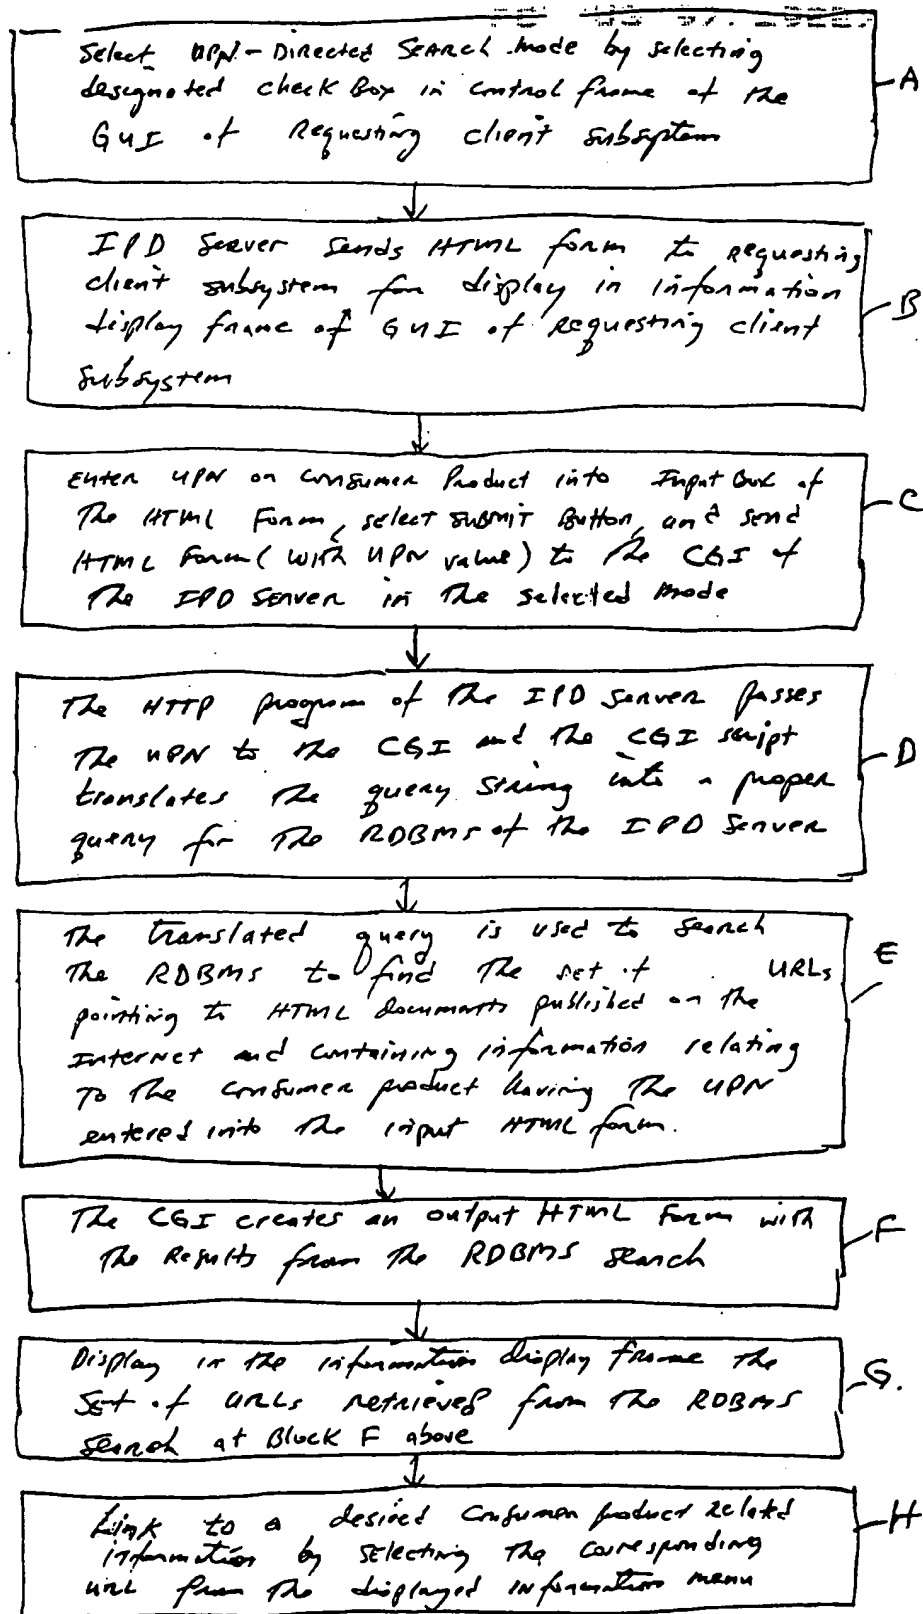 Select UPN-Directed Search mode by selecting
designated check Box in control frame of the
GUI of Requesting client subsystem
A
IPD Server sends HTML form to requesting
client subsystem for display in information
display frame of GUI of Requesting client
subsystem
B
Enter UPN on consumer Product into Input Box of
The HTML Form, select SUBMIT Button, and send
HTML Form (with UPN value) to The CGI of
The IPD Server in The selected mode
C
The HTTP program of The IPD Server passes
The UPN to the CGI and the CGI script
translates The query string into a proper
query for The RDBMS of the IPD Server
D
The translated query is used to search
The RDBMS to find The set of URLs
pointing to HTML documents published on the
Internet and containing information relating
To The consumer product having The UPN
entered into The input HTML form.
E
The CGI creates an output HTML Form with
The Results from The RDBMS search
F
Display in the information display frame The
Set of URLs retrieved from The RDBMS
Search at Block F above
G.
Link to a desired Consumer product Related
information by selecting The corresponding
URL from The displayed information menu
H